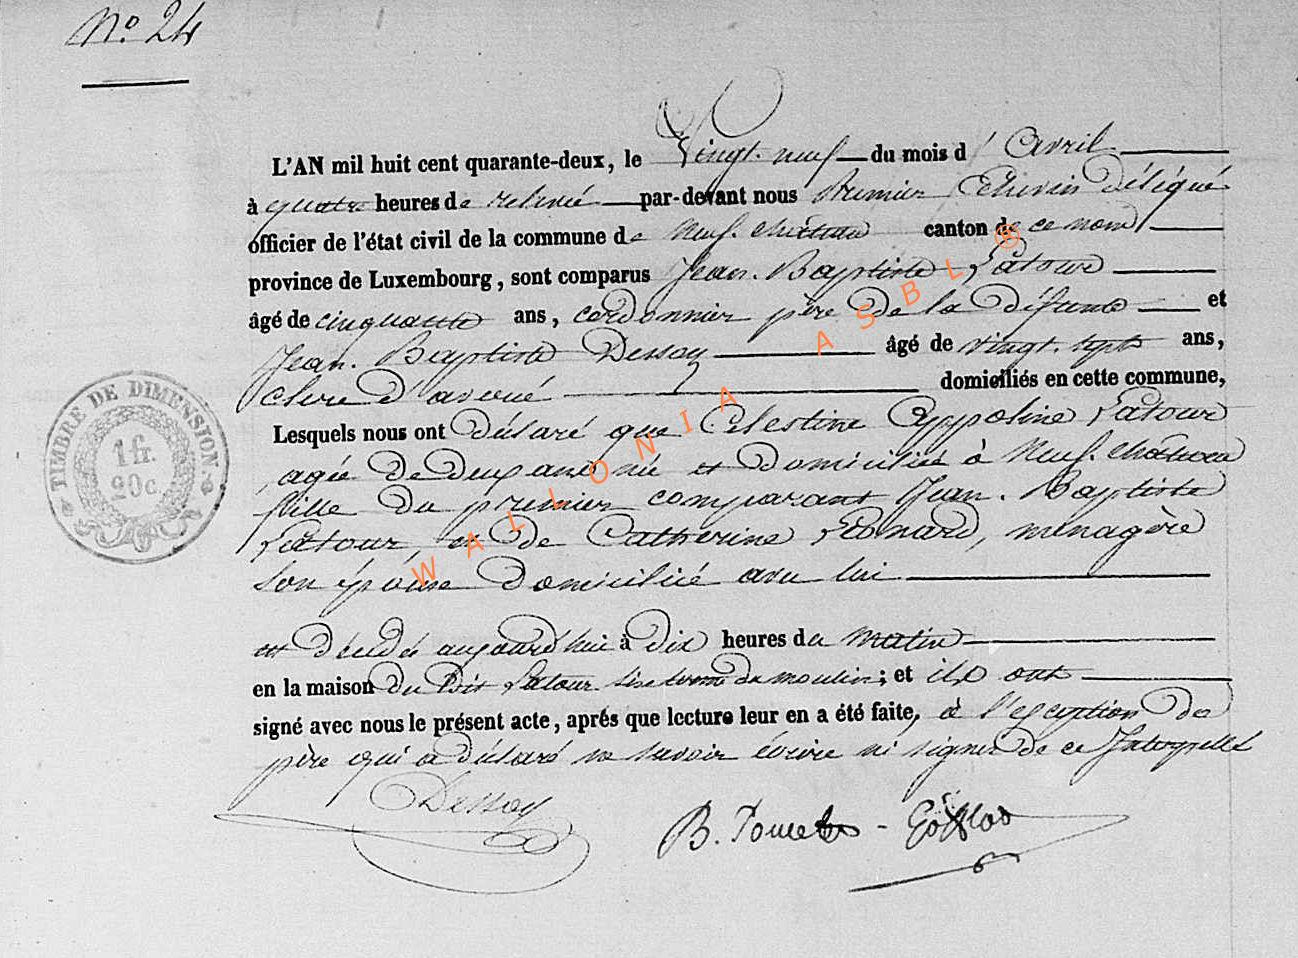 N.º 24
L'AN mil huit cent quarante-deux, le Vingt-neuf du mois d'Avril
à quatre heures de relevée par-devant nous Premier Echevin délégué
officier de l'état civil de la commune de Neufchâteau canton de ce nom
province de Luxembourg, sont comparus Jean-Baptiste Latour
âgé de cinquante ans, cordonnier père de la défunte et
Jean-Baptiste Dessoy âgé de vingt-sept ans,
clerc d'avoué domiciliés en cette commune,
Lesquels nous ont déclaré que Célestine Appoline Latour
agée de deux ans née et domiciliée à Neufchâteau
fille du premier comparant Jean-Baptiste
Latour, et de Catherine Léonard, ménagère
son épouse domicilié avec lui
est décédée aujourd'hui à dix heures du matin
en la maison du dit Latour du moulin; et ils ont
signé avec nous le présent acte, aprés que lecture leur en a été faite, à l'exception du
père qui a déclaré ne savoir écrire ni signer de ce Interpellé
Dessoy
B. Goffloo
TIMBRE DE DIMENSION
1 fr.
20 c.
WALLONIA ASBL ®